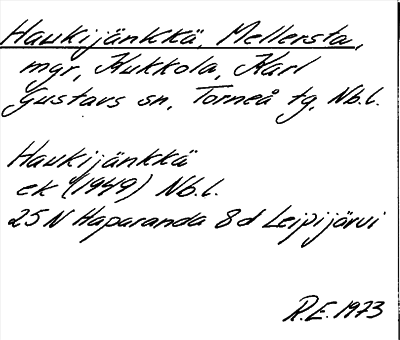 Haukijänkkä, Mellersta,
mgr, Kukkola, Karl
Gustavs sn, Torneå tg, Nb.l.
Haukijänkkä
ek (1949) Nb.l.
25N Haparanda 8d Leipijärvi
R.E. 1973